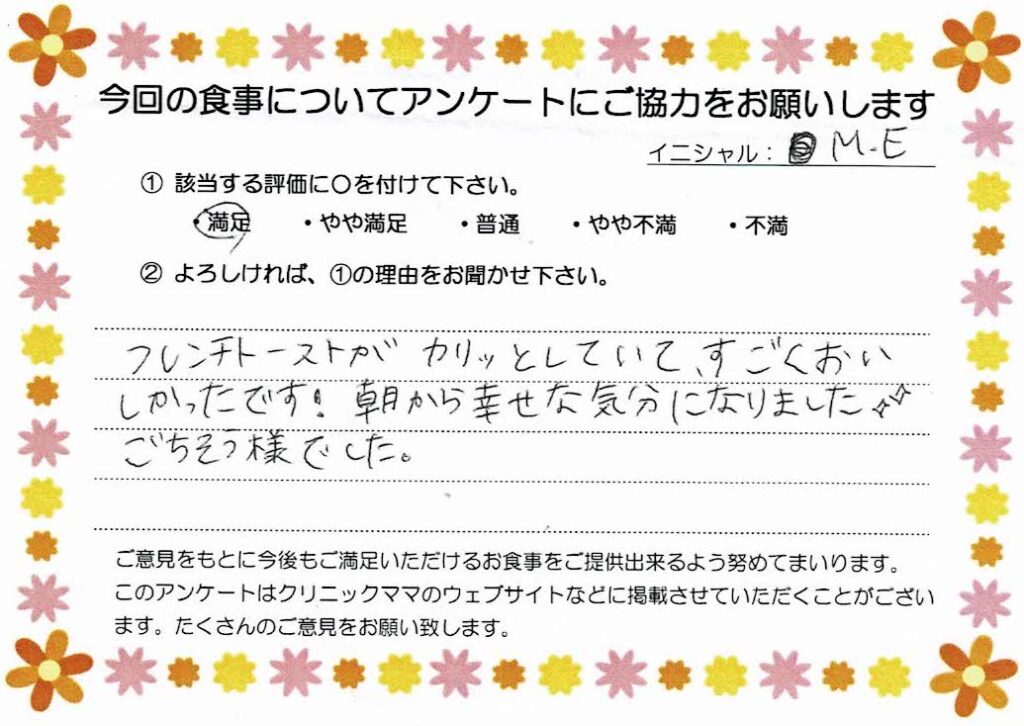 今回の食事についてアンケートにご協力をお願いします
イニシャル： M-E
① 該当する評価に〇を付けて下さい。
・満足 ・やや満足 ・普通 ・やや不満 ・不満
② よろしければ、①の理由をお聞かせ下さい。
フレンチトーストが カリッとしていて、すごくおい
しかったです! 朝から幸せな気分になりました
ごちそう様でした。
ご意見をもとに今後もご満足いただけるお食事をご提供出来るよう努めてまいります。
このアンケートはクリニックママのウェブサイトなどに掲載させていただくことがござい
ます。たくさんのご意見をお願い致します。